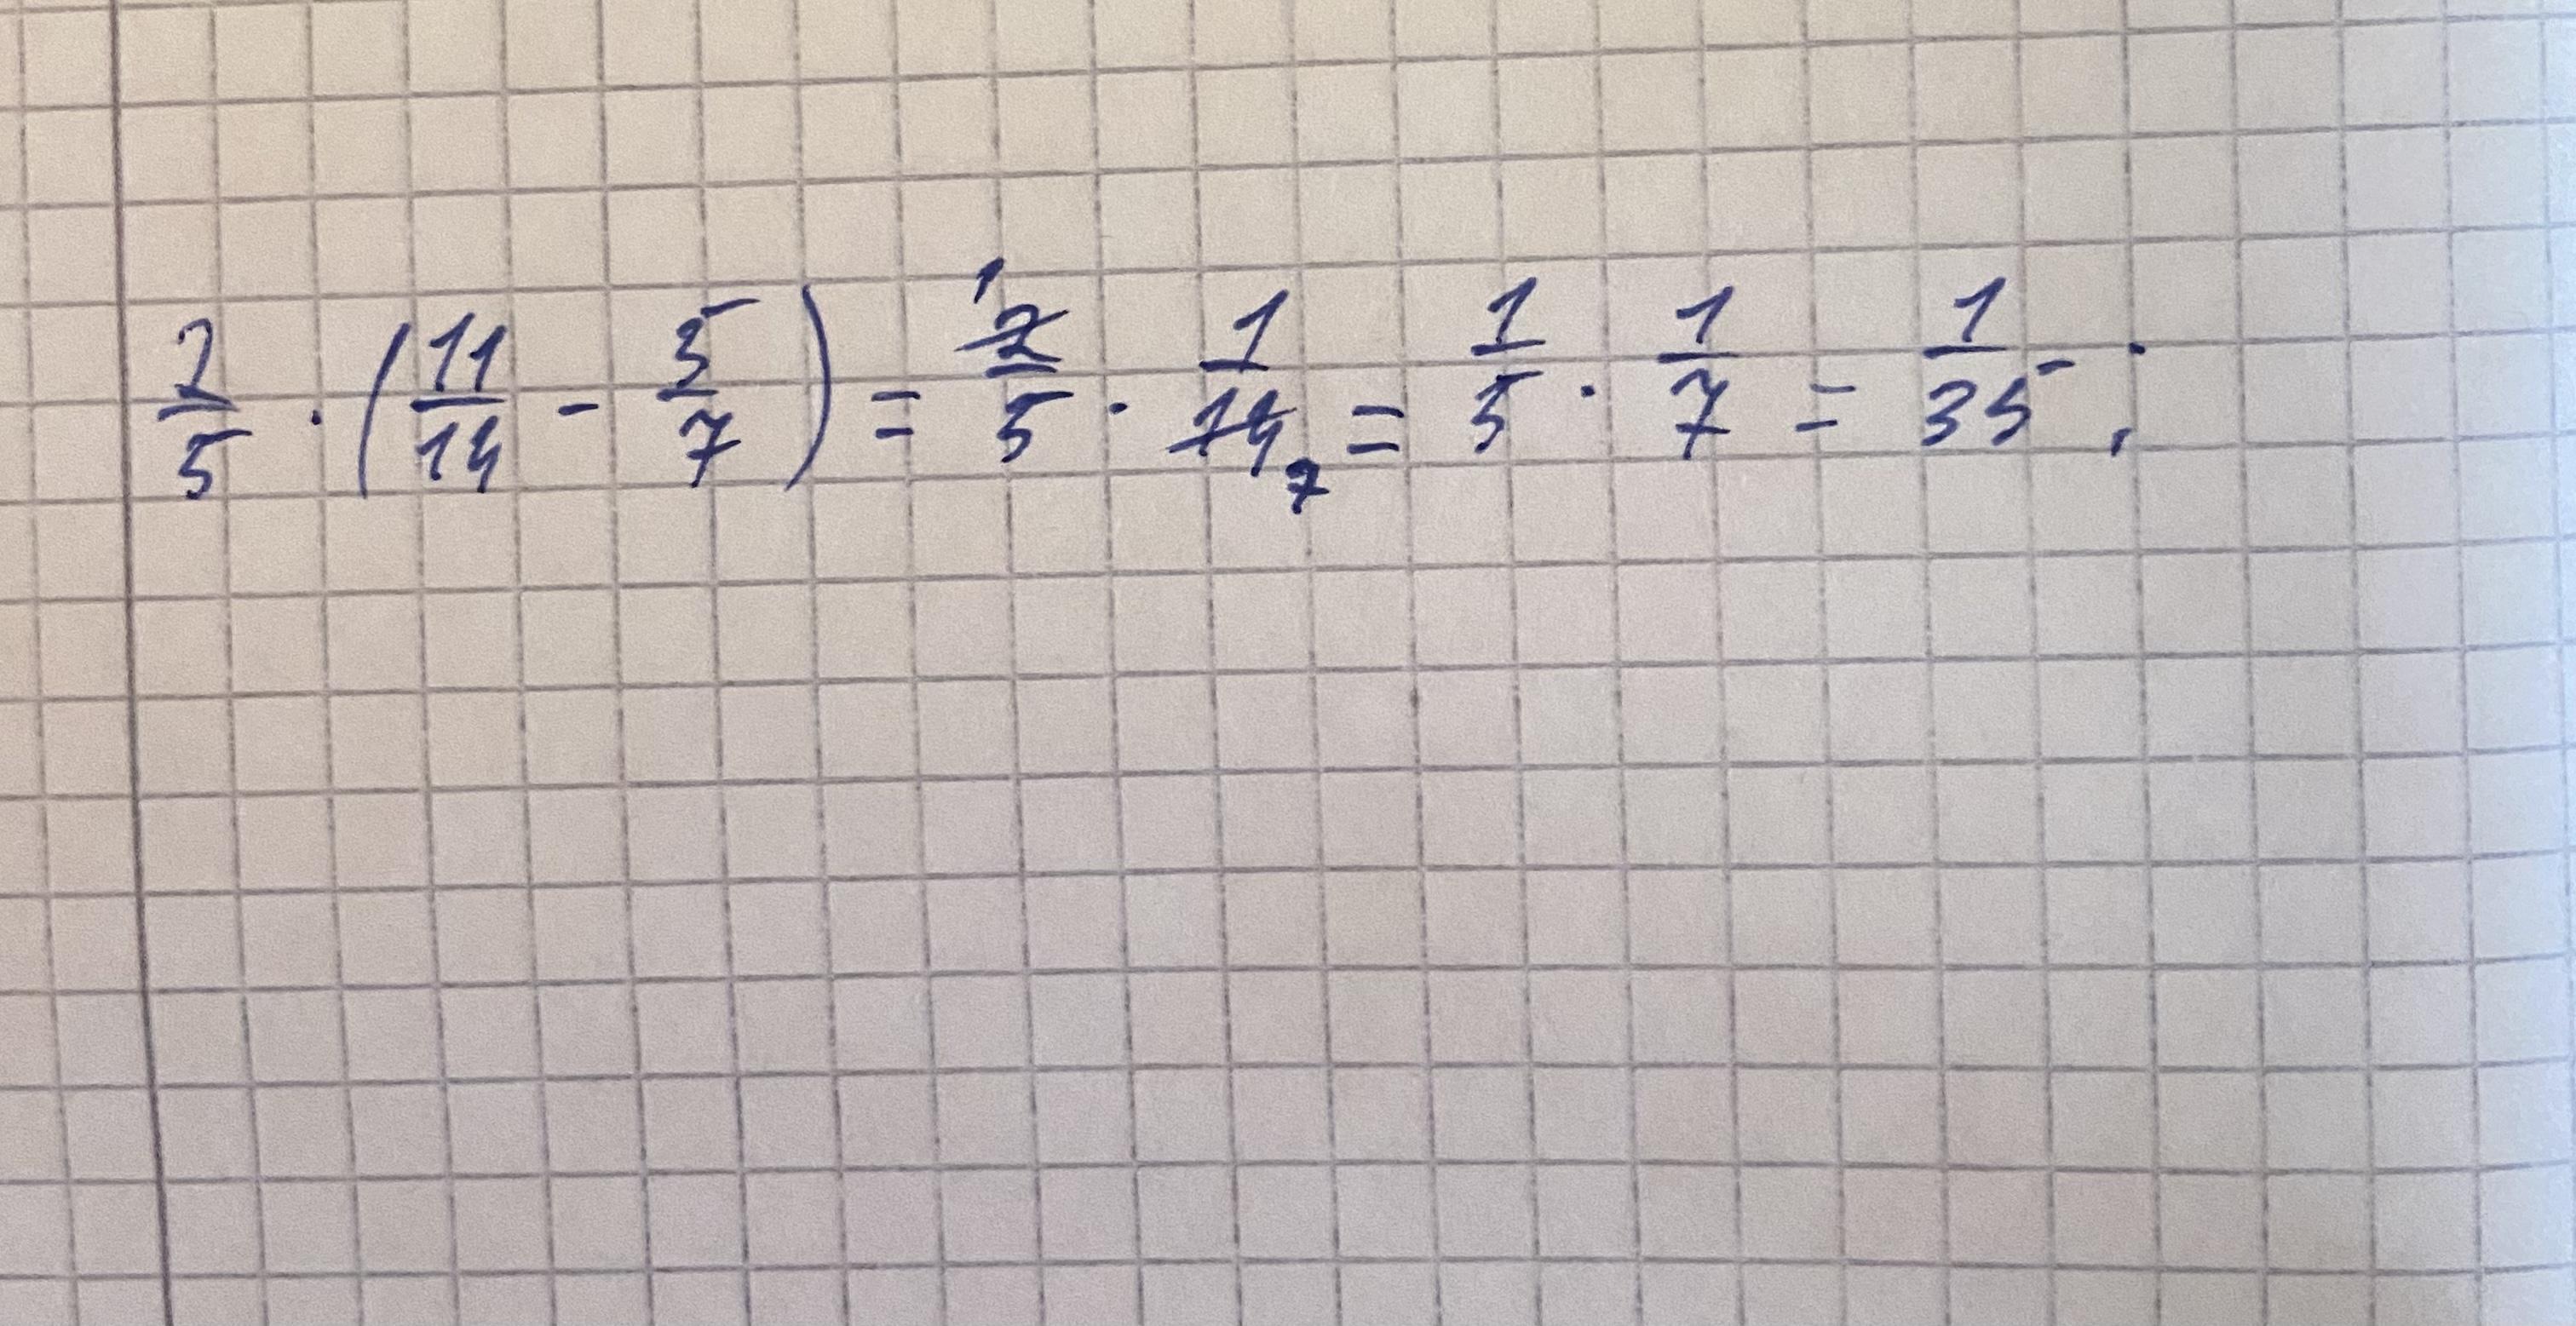 2/5 · (11/14 - 5/7) = 1 2/5 · 1/14 7 = 1/5 · 1/7 = 1/35 ;